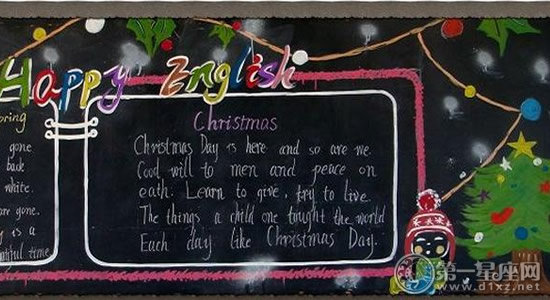 Happy English
oring
gone
back
white.
are gone.
is a
tiful time
Christmas
Christmas Day is here and so are we
Good will to men and peace on
eath: Learn to give, try to live
The things a child one tought the world
Each day like Christmas Day.
第一星座网
www.d1xz.net